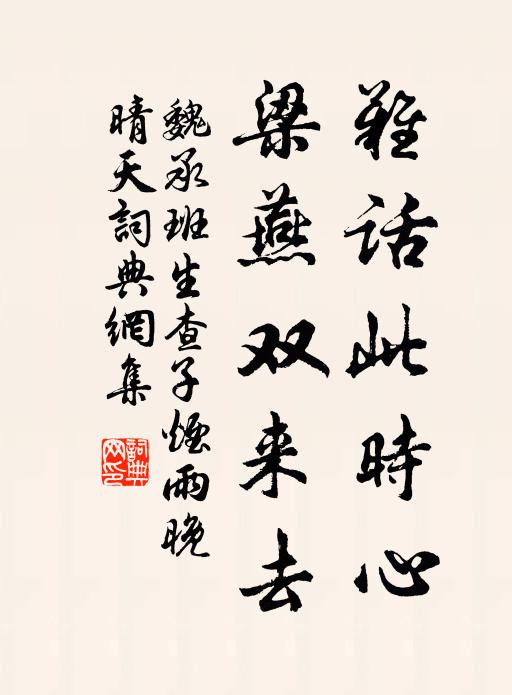 難話此時心
梁燕双来去
魏承班生查子煙雨晚
晴天詞典網集
詞典網印